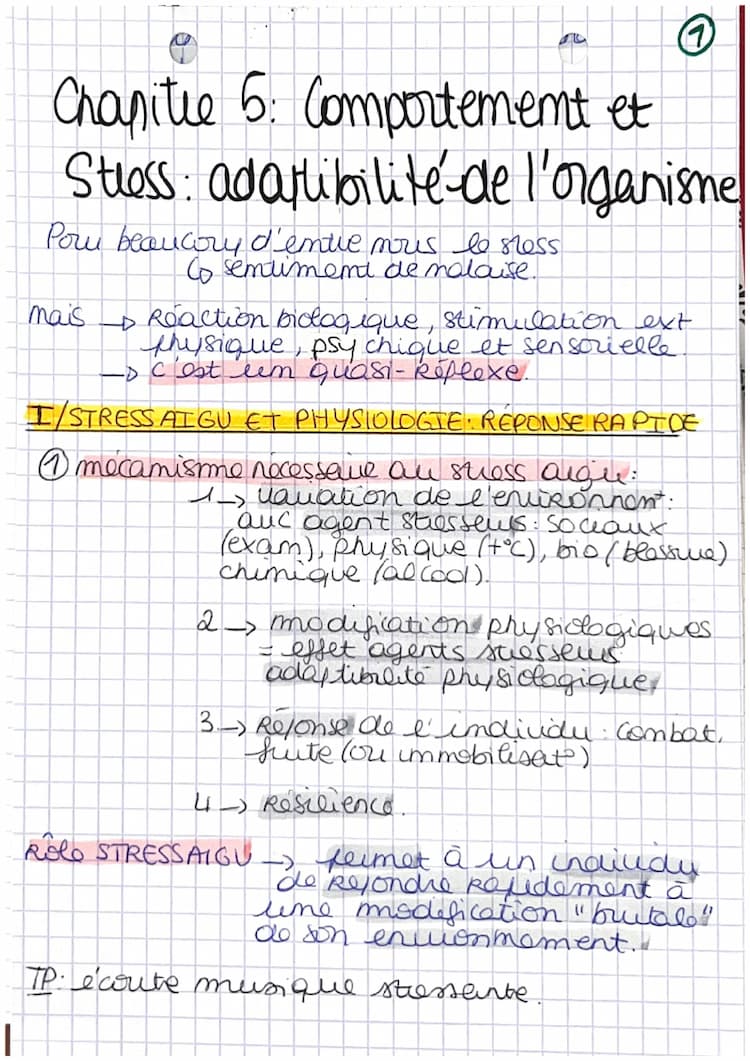 1
Chapitre 5: Comportement et
Stress: adaptibilité de l'organisme
Pour beaucoup d'entre nous le stress
↳ sentiment de malaise.
mais → Réaction biologique, stimulation ext
physique, psychique et sensorielle.
→ c'est um quasi-Réflexe.
I/STRESS AIGU ET PHYSIOLOGIE: RÉPONSE RAPIDE
① mécanisme nécessaire au stress aigu:
1→ variation de l'environnemt:
avc agent stresseurs: sociaux
(exam), physique (t°C), bio (blessure)
chimique (alcool).
2 → modification physiologiques
= effet agents stresseurs
adaptibilité physiologique
3 → Réponse de l'individu: combat,
fuite (ou immobilisat°)
4 → Résilience.
Rôle STRESS AIGU → permet à un individu
de Répondre Rapidement à
une modification "brutale"
de son environnement.
TP: écoute musique stressante.